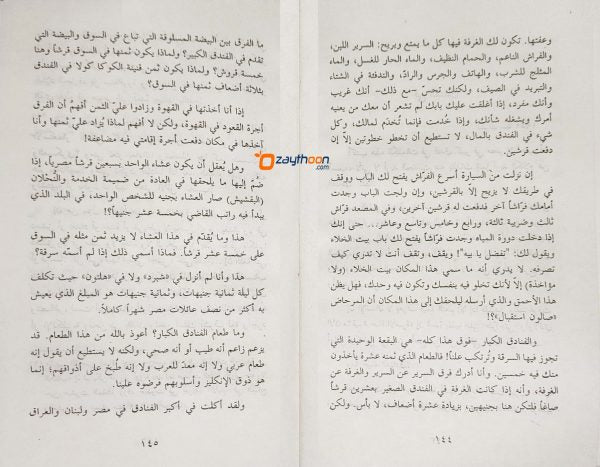 وعفتها. تكون لك الغرفة فيها كل ما يمتع ويريح: السرير اللين،
والفراش الناعم، والحمام النظيف، والماء الحار للغسل، والماء
المثلج للشرب، والهاتف والجرس والرادّ، والتدفئة في الشتاء
والتبريد في الصيف، ولكنك تحسّ -مع ذلك- أنك غريب
وأنك مفرد، إذا أغلقت عليك بابك لم تشعر أن معك من يعنيه
أمرك ويشغله شأنك، وإذا خُدمت فإنما تُخدَم لمالك، وكل
شيء في الفندق بالمال، لا تستطيع أن تخطو خطوتين إلّا إن
دفعت قرشين.
إن نزلت من السيارة أسرع الفرّاش يفتح لك الباب ووقف
في طريقك لا يزيح إلّا بالقرشين، وإن ولجت الباب وجدت
أمامك فرّاشاً آخر فدفعت له قرشين آخرين، وفي المصعد فرّاش
ثالث وضريبة ثالثة، ورابع وخامس وتاسع وعاشر... حتى إنك
إذا دخلت دورة المياه وجدت فرّاشاً يفتح لك باب بيت الخلاء
ويقول لك: "تفضل يا بيه"! ويقف، وتقف أنت لا تدري كيف
تصرفه. لا يدري أنه ما سمي هذا المكان بيت الخلاء (ولا
مؤاخذة) إلّا لأنك تخلو فيه بنفسك وتكون فيه وحدك، فهل يظن
هذا الأحمق والذي أرسله ليلحقك إلى هذا المكان أن المرحاض
«صالون استقبال»؟!
والفنادق الكبار -فوق هذا كله- هي البقعة الوحيدة التي
تجوز فيها السرقة وتُرتكب علناً! فالطعام الذي ثمنه عشرة يأخذون
منك فيه خمسين. وأنا أدرك فرق السرير عن السرير والغرفة عن
الغرفة، وأنه إذا كانت الغرفة في الفندق الصغير بعشرين قرشاً
صاغاً فلتكن هنا بجنيهين، بزيادة عشرة أضعاف، لا بأس. ولكن
١٤٤
ما الفرق بين البيضة المسلوقة التي تباع في السوق والبيضة التي
تقدم في الفندق الكبير؟ ولماذا يكون ثمنها في السوق قرشاً وهنا
خمسة قروش؟ ولماذا يكون ثمن قنينة الكوكا كولا في الفندق
بثلاثة أضعاف ثمنها في السوق؟
إذا أنا أخذتها في القهوة وزادوا عليّ الثمن أفهمُ أن الفرق
أجرة القعود في القهوة، ولكن لا أفهم لماذا يُزاد عليّ ثمنها وأنا
آخذها في مكان دفعت أجرة إقامتي فيه مضاعفة!
وهل يُعقل أن يكون عشاء الواحد بسبعين قرشاً مصرياً، إذا
ضُمّ إليها ما يلحقها في العادة من ضميمة الخدمة والحُلْان
(البقشيش) صار العشاء بجنيه للشخص الواحد، في البلد الذي
يبدأ فيه راتب القاضي بخمسة عشر جنيهاً؟!
هذا وما يُقدّم في هذا العشاء لا يزيد ثمن مثله في السوق
على خمسة عشر قرشاً. فماذا أسمي ذلك إذا لم أسمّه سرقة؟
هذا وأنا لم أنزل في «شبرد» ولا في «هلتون» حيث تكلف
كل ليلة ثمانية جنيهات، وثمانية جنيهات هو المبلغ الذي يعيش
به أكثر من نصف عائلات مصر شهراً كاملاً.
وما طعام الفنادق الكبار؟ أعوذ بالله من هذا الطعام. قد
يزعم زاعم أنه طيب أو أنه صحي، ولكنه لا يستطيع أن يقول إنه
طعام عربي ولا إنه معدّ للعرب ولا إنه طُبخ على أذواقهم؛ إنما
هو ذوق الإنكليز وأسلوبهم فرضوه علينا.
ولقد أكلت في أكبر الفنادق في مصر ولبنان والعراق
١٤٥
zaythoon.com